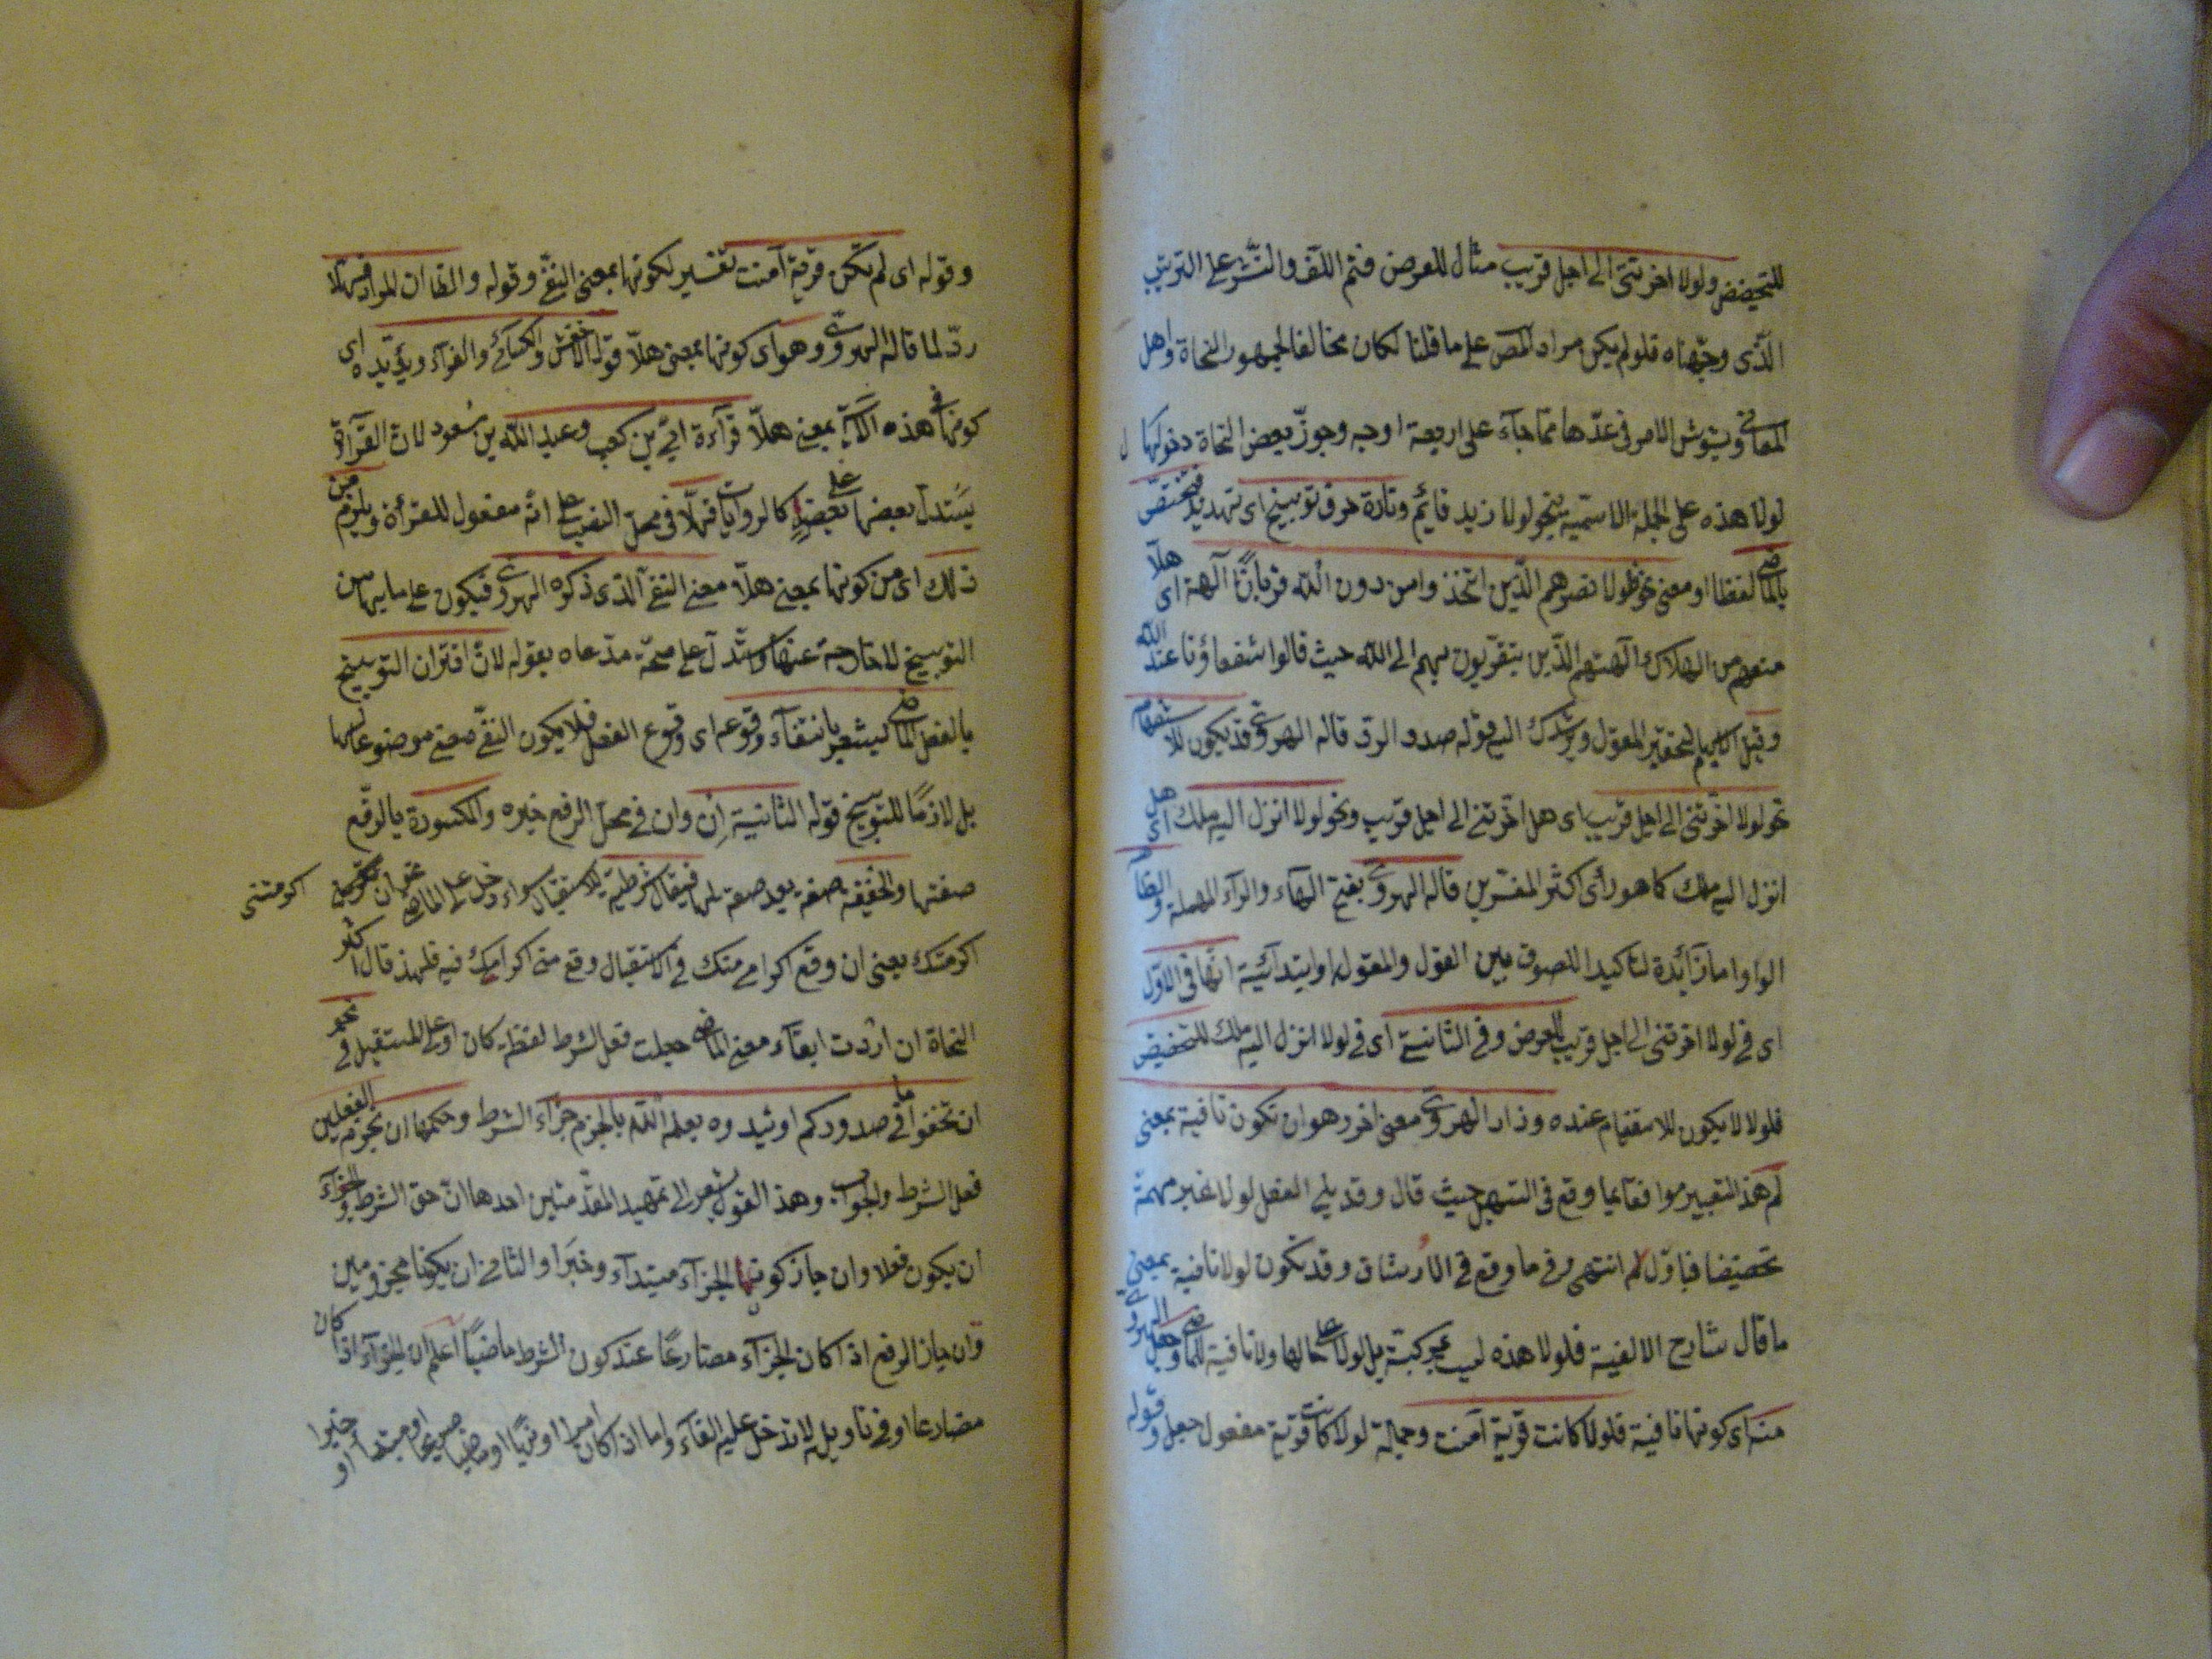 للتحضيض ولولا اخرتنى الى اجل قريب مثال للعرض فتم اللف والنشر على الترتيب
الذى وجهناه فلو لم يكن مراد المص على ما قلنا لكان مخالفا لجمهور النحاة واهل
المعانى ويشوش الامر فى عدها مما جآء على اربعة اوجه وجوز بعض النحاة دخولها
لولا هذه على الجملة الاسمية نحو لولا زيد قائم وتارة حرف توبيخ اى تهديد فتختص
بالماضى لفظا او معنى نحو فلولا نصرهم الذين اتخذوا من دون الله قربانا آلهة اى هلا
منعهم من الهلاك آلهتهم الذين يتقربون بهم الى الله حيث قالوا شفعاؤنا عند الله
وقيل لتحقير المعول ويرشدك اليه قوله صدو الرد قاله الهروى وقد يكون للاستفهام
نحو لولا اخرتنى الى اجل قريب اى هل اخرتنى الى اجل قريب ونحو لولا انزل اليه ملك اى هل
انزل اليه ملك كما هو رأى اكثر المفسرين قاله الهروى بفتح الهآء والرآء المهملة والظا
الواو اما زآئدة لتاكيد اللصوق بين القول والمقول او ابتدآئية انها فى الاول
اى فى لولا اخرتنى الى اجل قريب للعرض وفى الثانية اى فى لولا انزل اليه ملك للتحضيض
فلولا لا يكون للاستفهام عنده وزاد الهروى معنى اخر وهو ان تكون نافية بمعنى
لم هذ التعبير موافقا بما وقع فى التسهيل حيث قال وقد يلى الفعل لولا غير مفهمة
تحضيضا فياول لم انتهى وفى ما وقع فى الارشاف وقد تكون لولا نافية بمعنى
ما قال شارح الالفية فلولا هذه ليست مركبة بل لو على حالها ولا نافية للماضى وجعل الهروى
منه اى كونها نافية فلولا كانت قرية آمنت وجملة لولا كانت قرية مفعول جعل وقوله
وقوله اى لم تكن قرية آمنت تفسير لكونها بمعنى النفى وقوله والظا ان المراد فهلا
رد لما قاله الهروى وهو اى كونها بمعنى هلا قول الاخفش والكسائى والفرآء ويؤيده اى
كونها فى هذه الآية بمعنى هلا قرآءة ابى بن كعب وعبد الله بن مسعود لان القرآءة
يستدل بعضها على بعض كالروايات فهلا فى محل النصب على انه مفعول للقرأة ويلزم من
ذلك اى من كونها بمعنى هلا معنى النفى الذى ذكره الهروى فيكون على ما يها من
التوبيخ للخارجة عنها واستدل على صحة مدعاه بقوله لان اقتران التوبيخ
بالفعل الماضى ليشعر بانتفآء وقوعه اى وقوع الفعل فلا يكون النفى معنى موضوعا لها
بل لازما للتوبيخ قوله الثانية ان وان فى محل الرفع خبره والمكسورة بالرفع
صفتها والخفيفة صفة بعد صفة لها فيقال شرطية للاستقبال سواء دخل على الماضى نحو ان اكرمتنى
اكرمتك يعنى ان وقع اكرامى منك فى الاستقبال وقع منى اكرامك فيه فلهذ قال اكثر
النحاة ان اردت ابقآء معنى الماضى جعلت فعل الشرط لفظ كان او على المستقبل فى نحو
ان تخفوا ما فى صدوركم او تبدوه يعلمه الله بالجزم جزآء الشرط وحكمها ان تجزم الفعلين
فعل الشرط والجواب وهذ القول يشعر الى تمهيد المقدمتين احدها ان حق الشرط والجزآء
ان يكون فعلا وان جاز كونها الجزآء مبتدآء وخبرا والثانى ان يكونا مجزومين
وان جاز الرفع اذا كان الجزآء مضارعا عند كون الشرط ماضيا اعلم ان الجزآء اذا كان
مضارعا او فى تاويله لا تدخل عليه الفآء واما اذا كان امرا او نهيا او ماضيا صريحا او مبتدا او خبرا